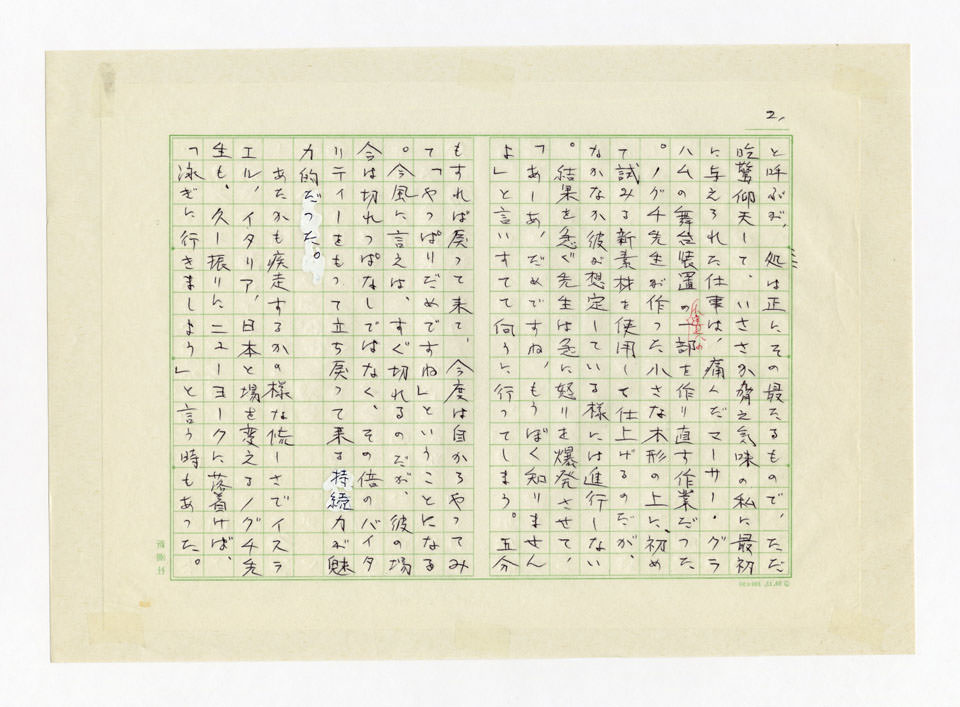 2,
と呼ぶが、処は正にその最たるもので、ただ
吃驚仰天して、いささか脅え気味の私に最初
に与えられた仕事は、痛んだマーサー・グラ
ハムの舞台装置の一部を作り直す作業だった
。ノグチ先生が作った小さな木形の上に、初め
て試みる新素材を使用して仕上げるのだが、
なかなか彼が想定している様には進行しない
。結果を急ぐ先生は急に怒りを爆発させて、
「あーあ、だめですね、もうぼく知りません
よ」と言いすてて向うに行ってしまう。五分
もすれば戻って来て、今度は自からやってみ
て「やっぱりだめですね」ということになる
。今風に言えば、すぐ切れるのだが、彼の場
合は切れっぱなしではなく、その倍のバイタ
リティーをもって立ち戻って来る持続力が魅
力的だった。
あたかも疾走するかの様な慌しさでイスラ
エル、イタリア、日本と場を変えるノグチ先
生も、久し振りにニューヨークに落着けば、
「泳ぎに行きましょう」と言う時もあった。